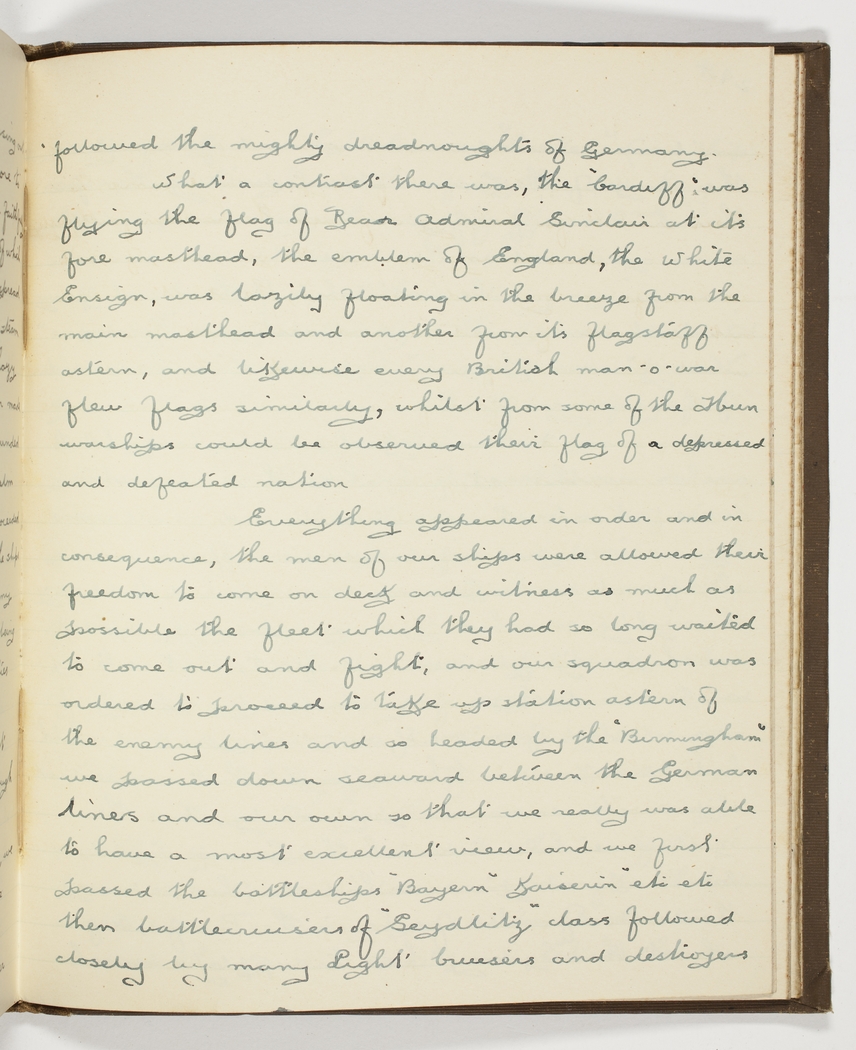 followed the mighty dreadnoughts of Germany.
What a contrast there was, the "Cardiff" was
flying the flag of Rear Admiral Sinclair at its
fore masthead, the emblem of England, the White
Ensign, was lazily floating in the breeze from the
main masthead and another from its flagstaff
astern, and likewise every British man-o-war
flew flags similarly, whilst from some of the Hun
warships could be observed their flag of a depressed
and defeated nation
Everything appeared in order and in
consequence, the men of our ships were allowed their
freedom to come on deck and witness as much as
possible the fleet which they had so long waited
to come out and fight, and our squadron was
ordered to proceed to take up station astern of
the enemy lines and so headed by the "Birmingham"
we passed down seaward between the German
liners and our own so that we really was able
to have a most excellent view, and we first
passed the battleships "Bayern" Kaiserin" etc etc
then battlecruisers of "Seydlitz" class followed
closely by many Light Cruisers and destroyers